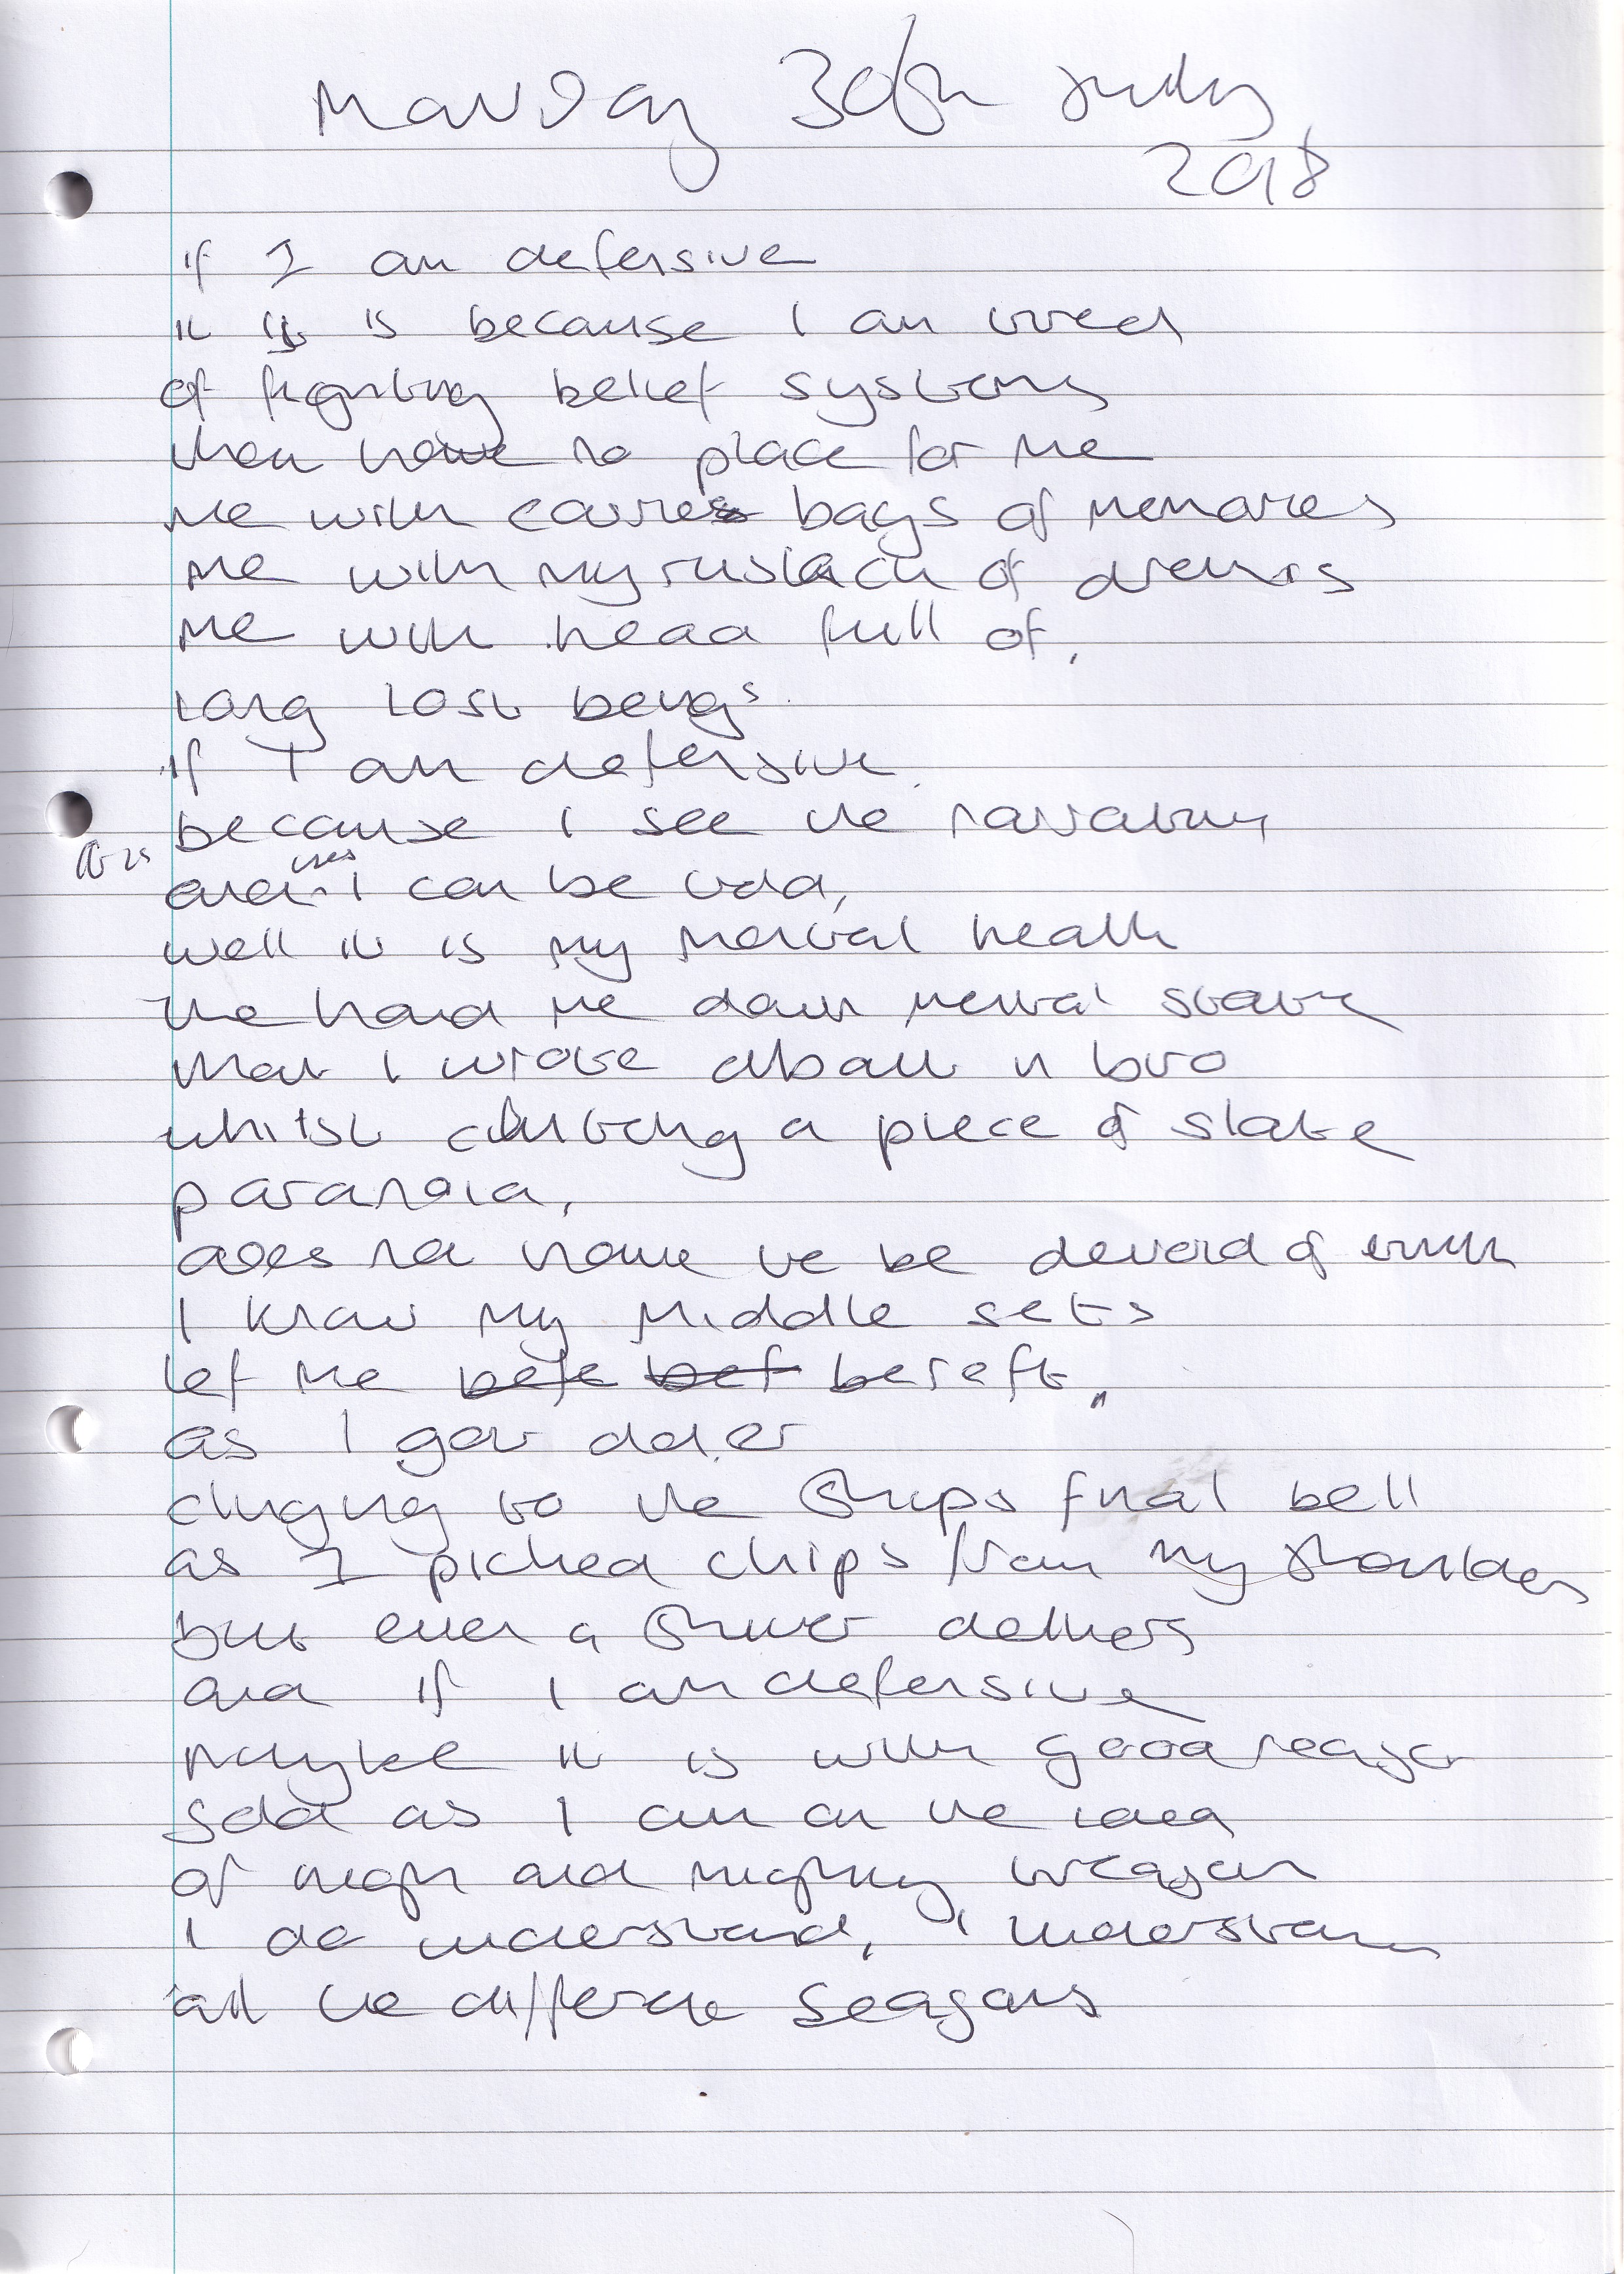 Monday 30th July
2018
if I am defensive
it is because I am tired
of fighting belief systems
that have no place for me
me with carrier bags of memories
me with my rucksack of dreams
me with head full of,
long lost beings
if I am defensive
because I see the narrative
it is
and I can be told,
well it is my mental health
the hand me down mental state
that I wrote about in two
whilst clutching a piece of slate
paranoia,
does not have to be devoid of truth
I know my middle sets
lef me bereft,
as I got older
clinging to the Ships final bell
as I picked chips from my shoulder
but even a Shiver delivers
and if I am defensive
maybe it is with good reason
Sold as I am on the idea
of high and mighty treason
I do understand, I understand
all the different seasons